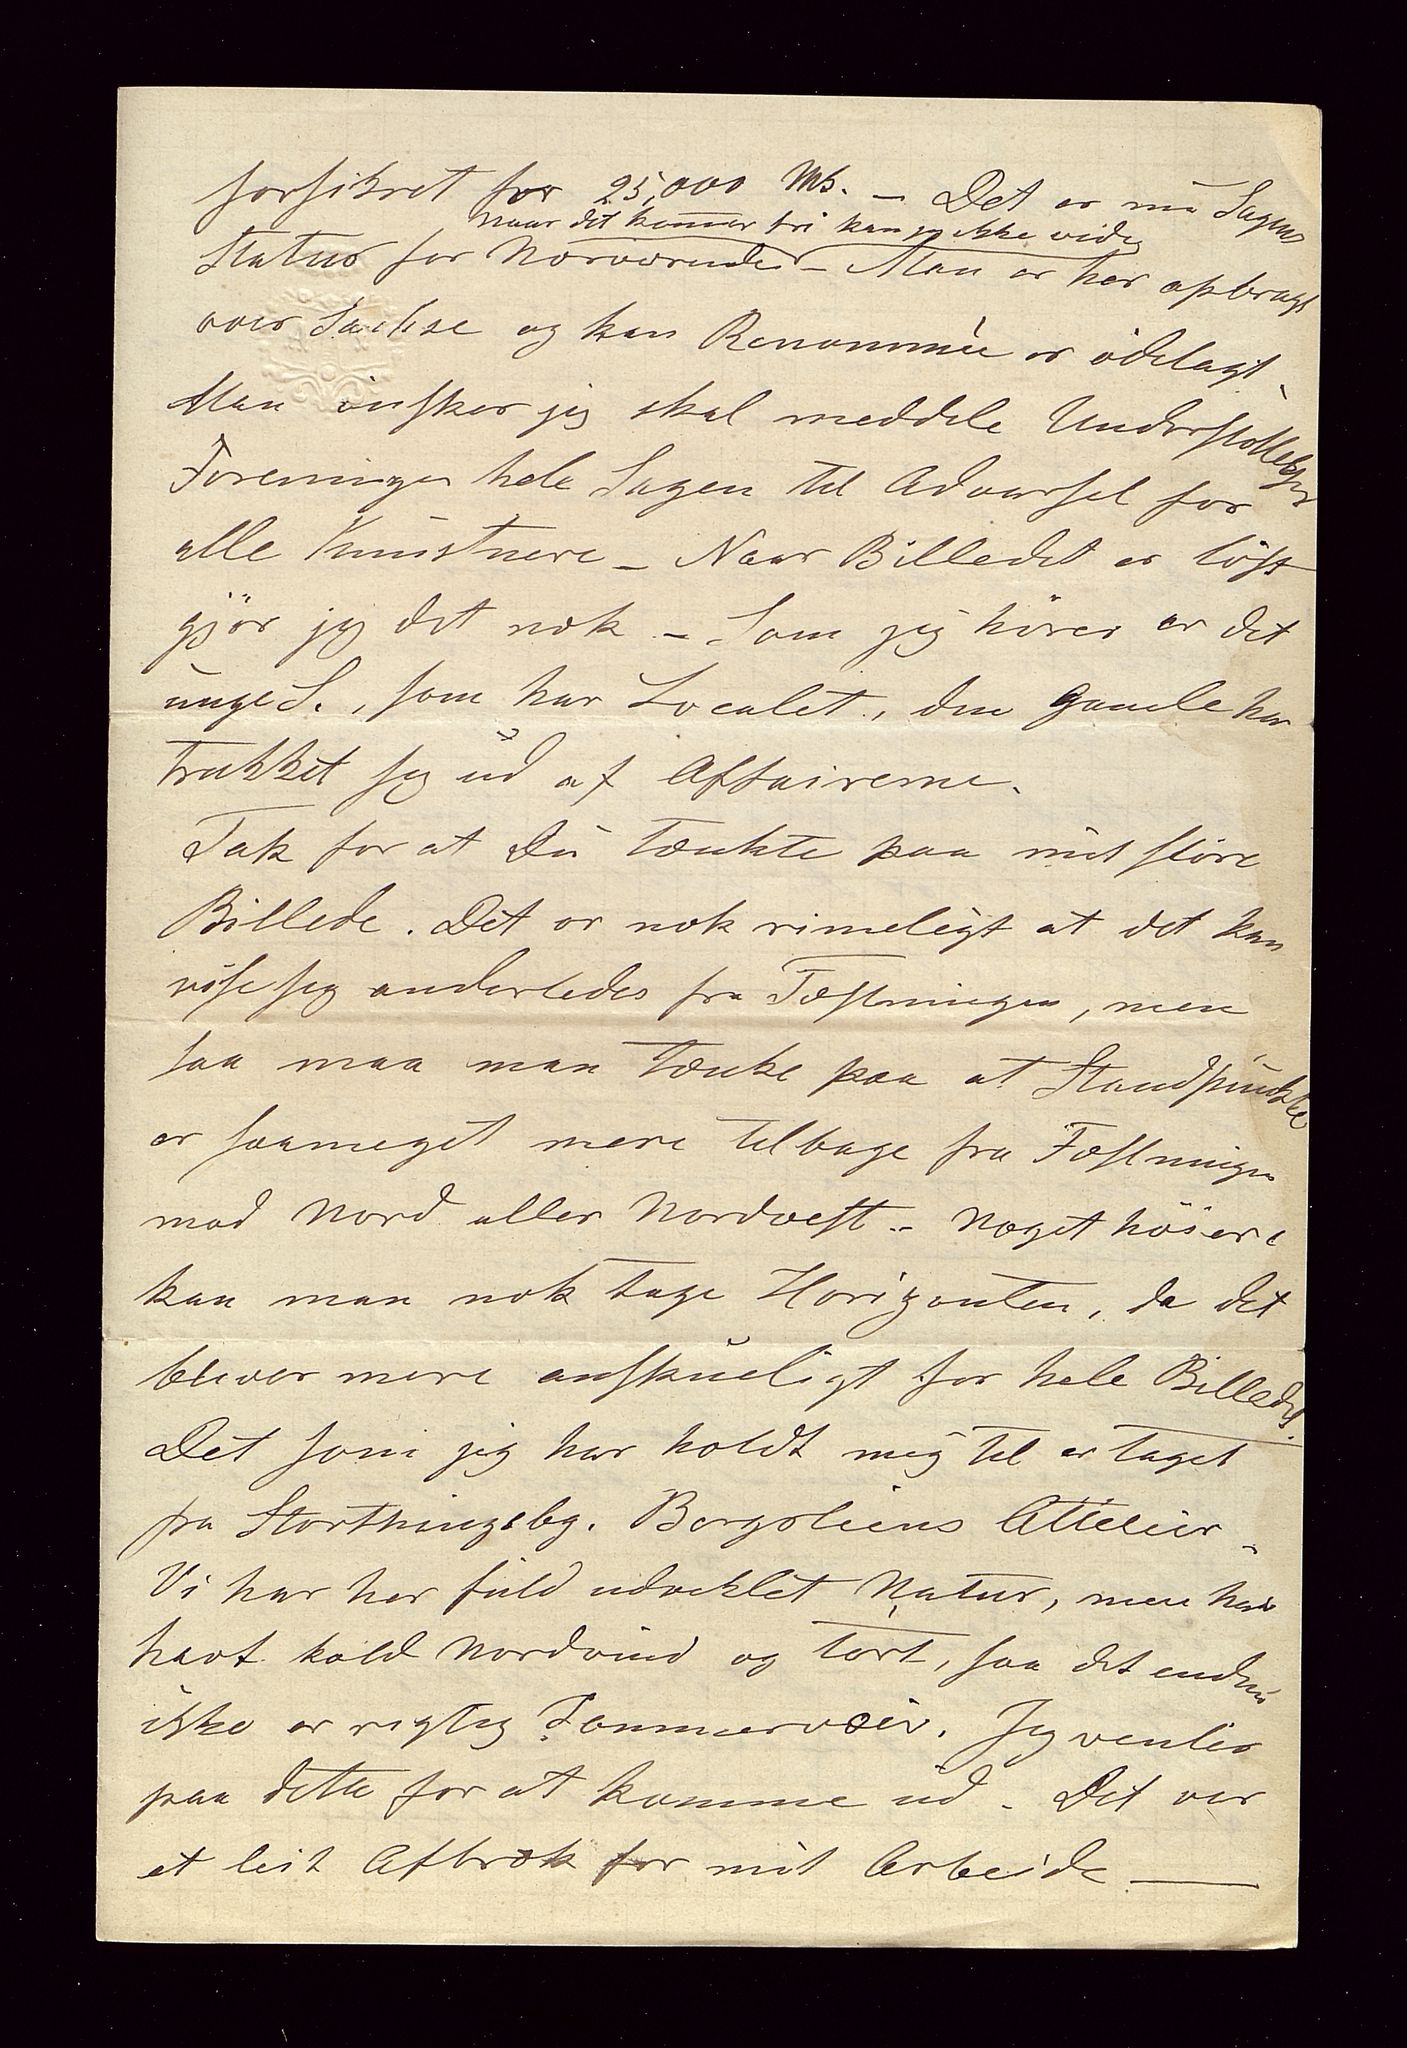 forsikret for 25,000 Mk. – Det er nu Sagens
naar det kommer fri kan jeg ikke vide
Status for Nærværende – Man er her opbragt
over Sachse og hans Renommée er ödelagt –
Man önsker jeg skal meddele Understöttelses
Foreningen hele Sagen til Advarsel for
alle Kunstnere – Naar Billedet er löst
gjör jeg det nok – Som jeg hörer er det
unge S., som har Localet, den gamle har
trukket sig ud af Affairerne.
Tak for at Du tænkte paa mit större
Billede. Det er nok rimeligt at det kan
vise sig anderledes fra Fæstningen, men
saa maa man tænke paa at Standpunktet
er saameget mere tilbage fra Fæstningen
mod Nord eller Nordvest – Noget höiere
kan man nok tage Horizonten, da det
bliver mere anskueligt for hele Billedet.
Det som jeg har holdt mig til er taget
fra Storthingsbg. Borgsliens Attelier –
Vi har her fuld udviklet Natur, men har
havt kold Nordvind og tört, saa det endnu
ikke er rigtig Sommerveir. Jeg venter
paa dette for at komme ud – Det var
et leit Afbræk for mit Arbeide —